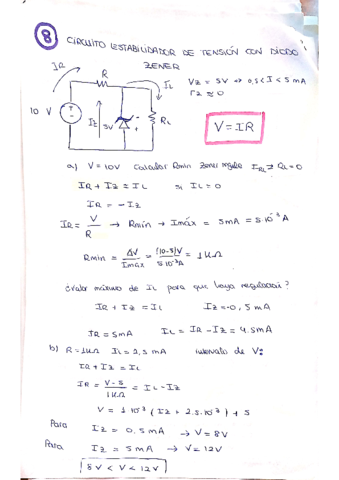 8 CIRCUITO ESTABILIZADOR DE TENSIÓN CON DIODO
ZENER
IR
R
IL
VZ = 5V ⇒ 0,5 < I < 5 mA
rz ≈ 0
10 V
IZ
5V
RL
V = IR
a) V = 10V Calcular Rmin zener regule
IR + IZ = IL si IL = 0
IR = - IZ
IR = V/R → Rmín → Imáx = 5mA = 5·10⁻³ A
Rmin = ΔV/Imáx = (10-5)V/5·10⁻³A = 1KΩ
¿Valor máximo de IL para que haya regulación?
IR + IZ = IL IZ = -0,5mA
IR = 5mA IL = IR - IZ = 4.5mA
b) R = 1KΩ IL = 2,5 mA intervalo de V:
IR + IZ = IL
IR = V-5/1KΩ = IL - IZ
V = 1·10³ (IZ + 2.5·10⁻³) + 5
Para IZ = 0.5mA → V = 8V
Para IZ = 5mA → V = 12V
8V < V < 12V